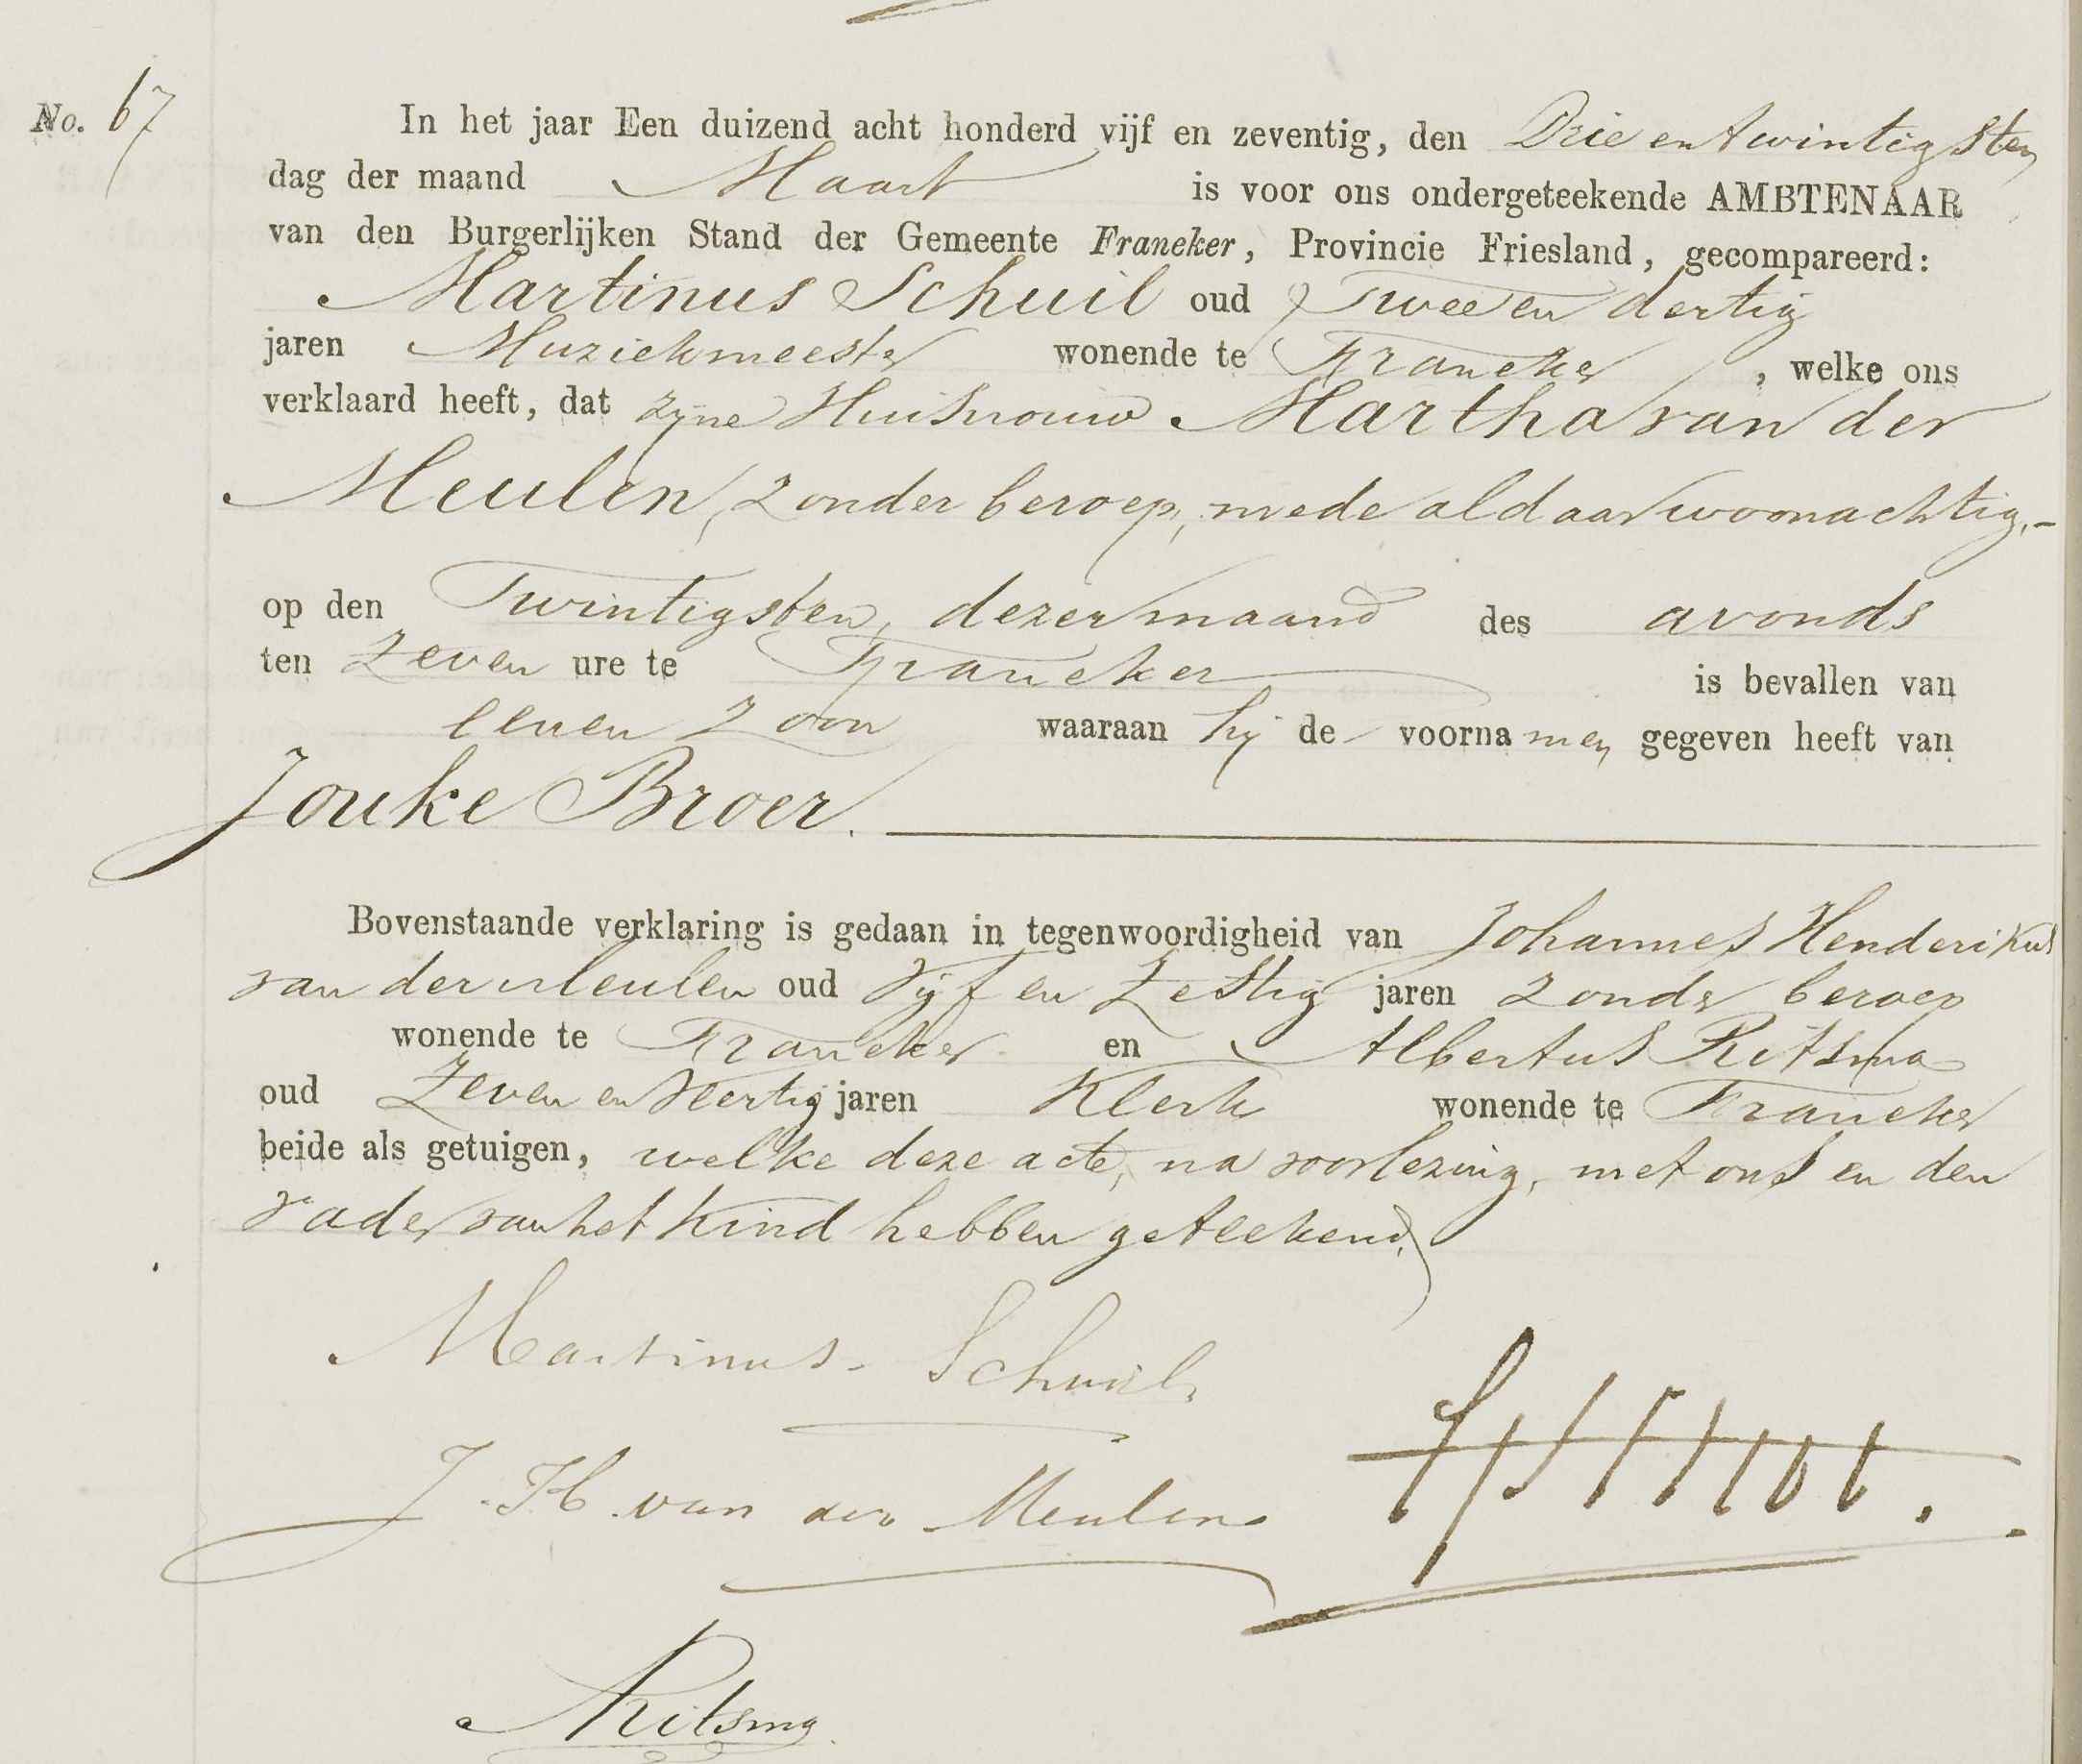 No. 67
In het jaar Een duizend acht honderd vijf en zeventig, den Drie en twintigsten
dag der maand Maart is voor ons ondergeteekende AMBTENAAR
van den Burgerlijken Stand der Gemeente Franeker, Provincie Friesland, gecompareerd:
Martinus Schuil oud Twee en dertig
jaren Muziekmeester wonende te Franeker, welke ons
verklaard heeft, dat zijne Huisvrouw Martha van der
Meulen, zonder beroep, mede aldaar woonachtig,-
op den Twintigsten dezer maand des avonds
ten Zeven ure te Franeker is bevallen van
eenen Zoon waaraan hij de voornamen gegeven heeft van
Jouke Broer.
Bovenstaande verklaring is gedaan in tegenwoordigheid van Johannes Henderikus
van der Meulen oud Vijf en Zestig jaren zonder beroep
wonende te Franeker en Albertus Ritsma
oud Zeven en Veertig jaren Klerk wonende te Franeker
beide als getuigen, welke deze acte, na voorlezing, met ons en den
vader van het Kind hebben geteekend.
Martinus Schuil
J. H. van der Meulen
ARitsma